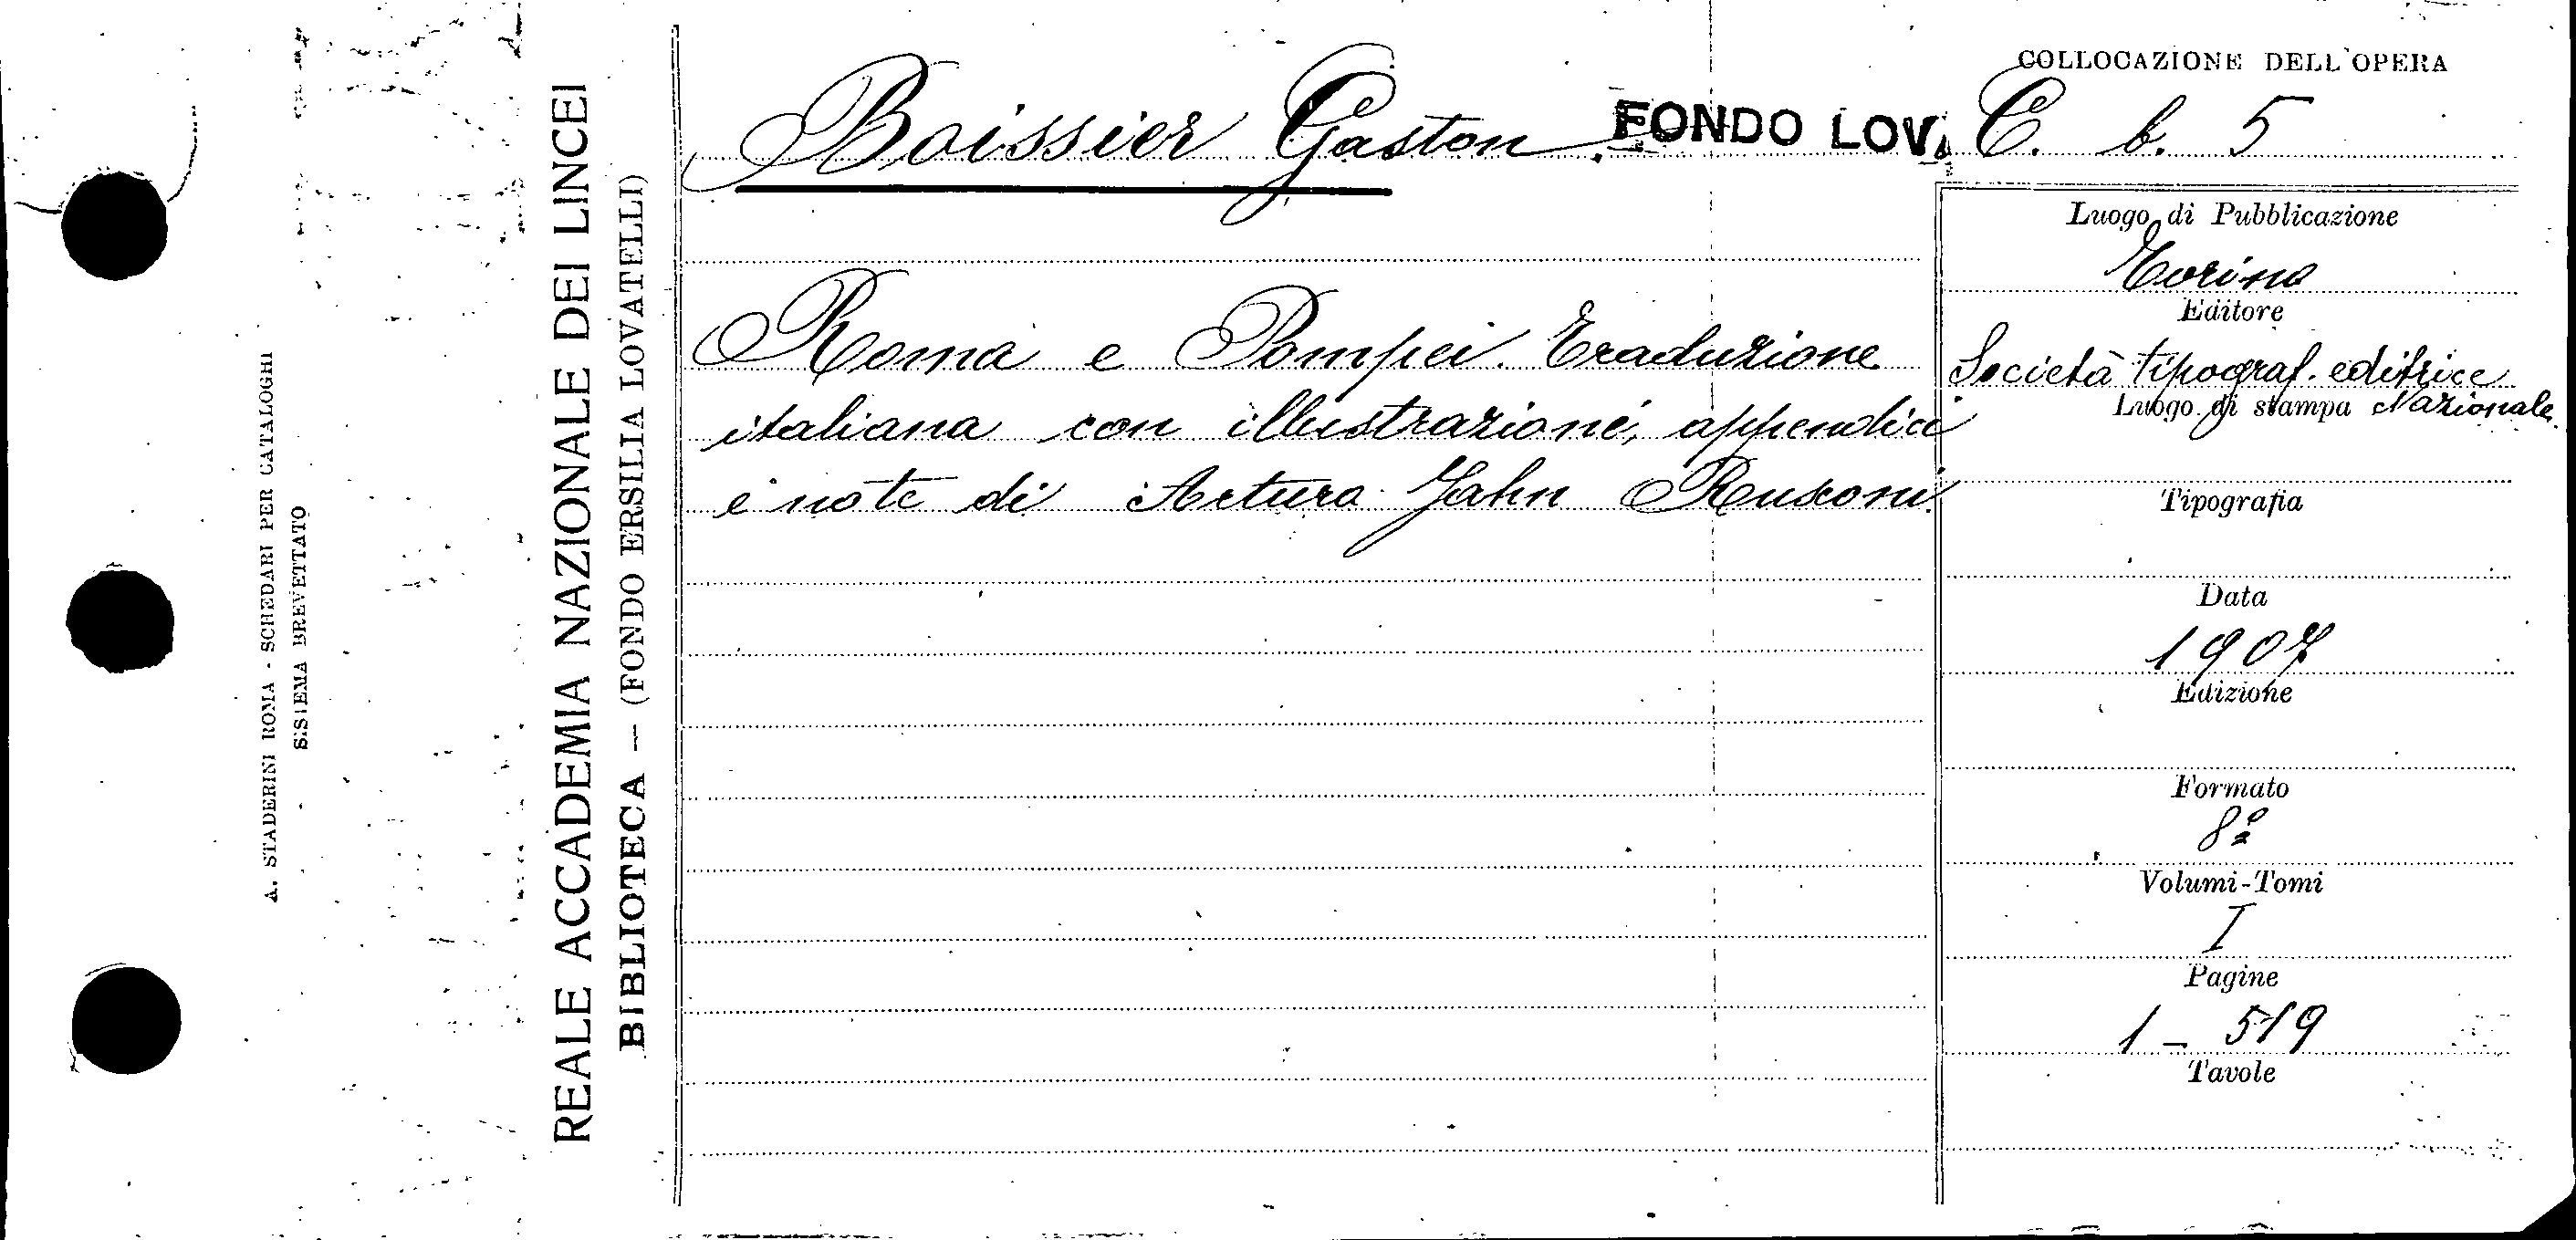 A. STADERINI ROMA - SCHEDARI PER CATALOGHI
SISTEMA BREVETTATO
REALE ACCADEMIA NAZIONALE DEI LINCEI
BIBLIOTECA — (FONDO ERSILIA LOVATELLI)
Boissier Gaston.
FONDO LOV.
COLLOCAZIONE DELL'OPERA
C. b. 5
Roma e Pompei. Traduzione
italiana con illustrazione, appendici
e note di Arturo Jahn Rusconi.
Luogo di Pubblicazione
Torino
Editore
Società tipograf. editrice
Nazionale.
Luogo di stampa
Tipografia
Data
1907
Edizione
Formato
8º
Volumi-Tomi
I
Pagine
1 – 519
Tavole